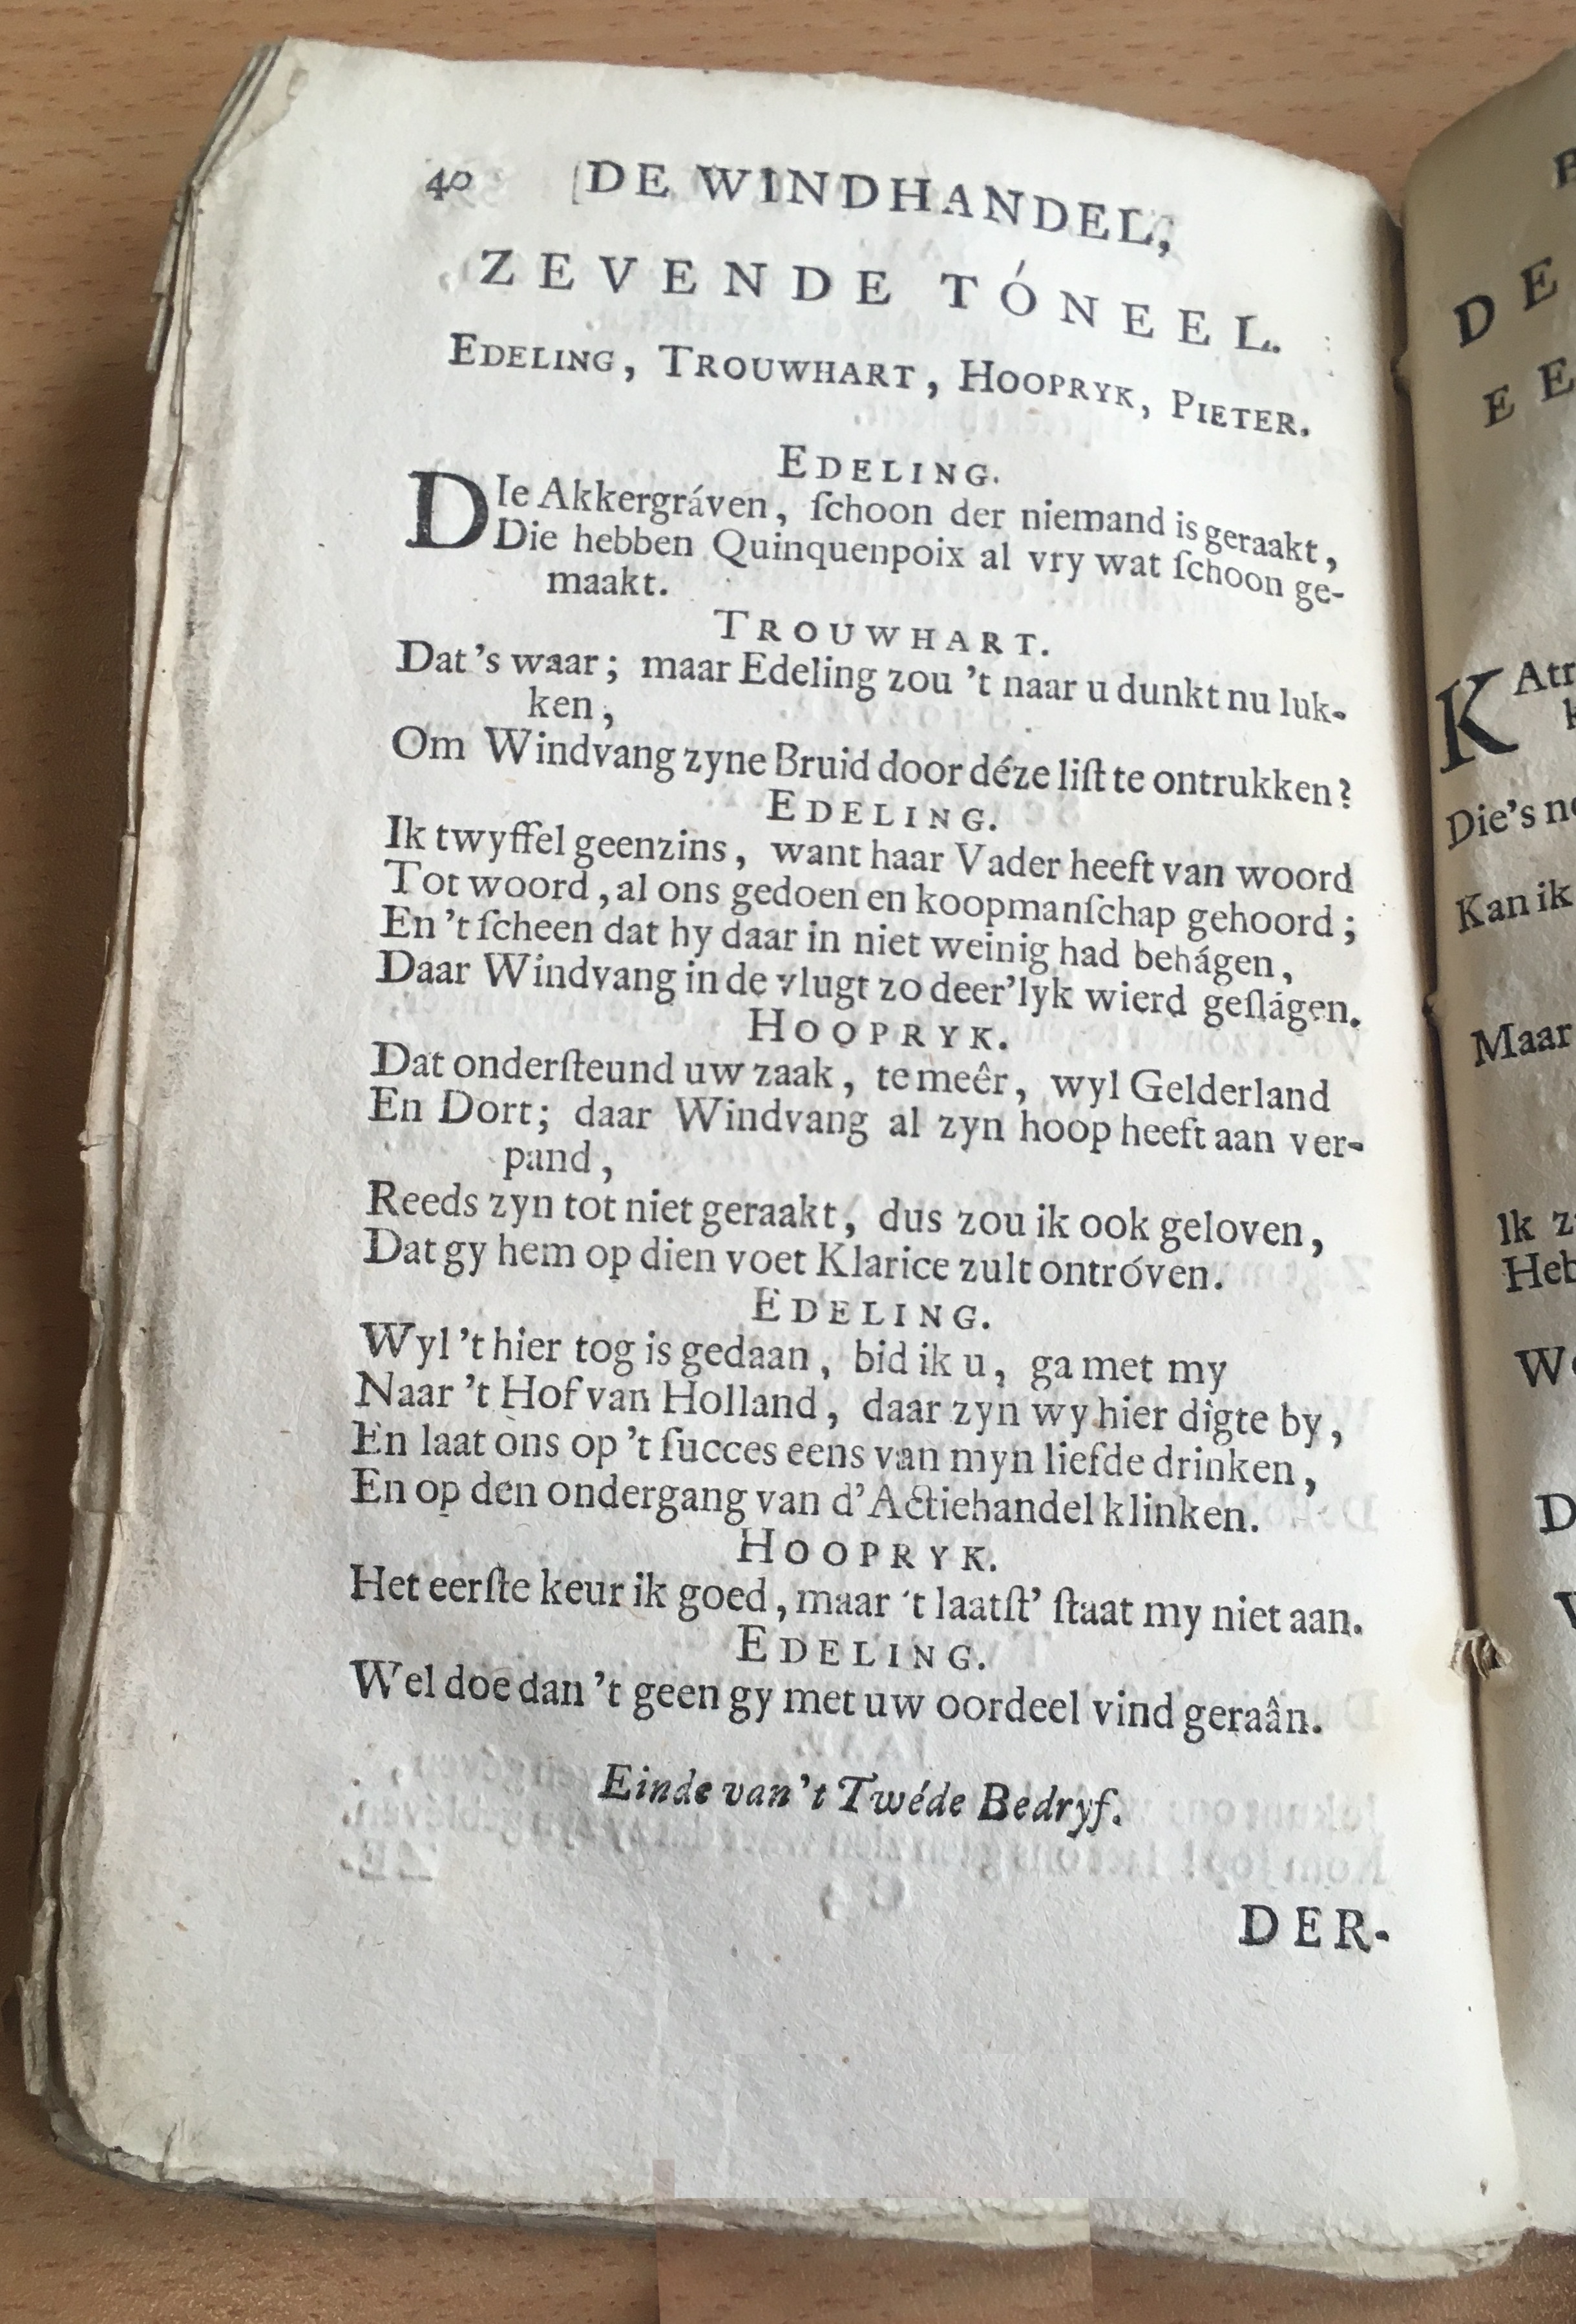 40 DE WINDHANDEL,
ZEVENDE TÓNEEL.
EDELING, TROUWHART, HOOPRYK, PIETER.
EDELING.
DIe Akkergráven, ſchoon der niemand is geraakt,
Die hebben Quinquenpoix al vry wat ſchoon ge-
maakt.
TROUWHART.
Dat's waar; maar Edeling zou 't naar u dunkt nu luk-
ken,
Om Windvang zyne Bruid door déze liſt te ontrukken?
EDELING.
Ik twyffel geenzins, want haar Vader heeft van woord
Tot woord, al ons gedoen en koopmanſchap gehoord;
En 't ſcheen dat hy daar in niet weinig had behágen,
Daar Windvang in de vlugt zo deer'lyk wierd geſlágen.
HOOPRYK.
Dat onderſteund uw zaak, te meêr, wyl Gelderland
En Dort; daar Windvang al zyn hoop heeft aan ver-
pand,
Reeds zyn tot niet geraakt, dus zou ik ook geloven,
Dat gy hem op dien voet Klarice zult ontróven.
EDELING.
Wyl 't hier tog is gedaan, bid ik u, ga met my
Naar 't Hof van Holland, daar zyn wy hier digte by,
En laat ons op 't ſucces eens van myn liefde drinken,
En op den ondergang van d'Actiehandel klinken.
HOOPRYK.
Het eerſte keur ik goed, maar 't laatſt' ſtaat my niet aan.
EDELING.
Wel doe dan 't geen gy met uw oordeel vind geraân.
Einde van 't Twéde Bedryf.
DER-
DE
EE
KAtr
Die's
Kan ik
Maar
Ik
Heb